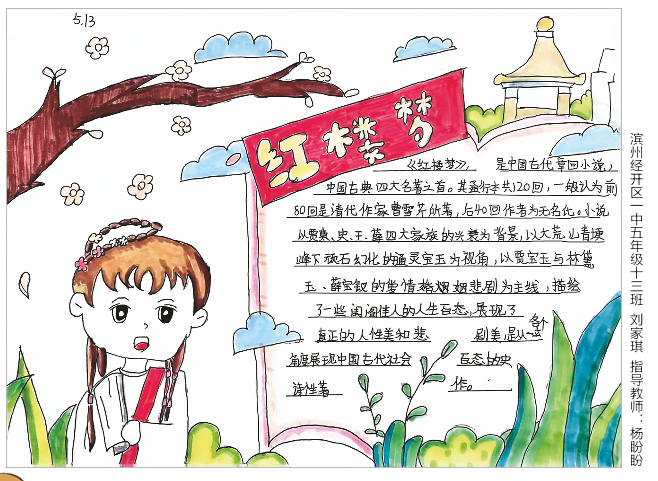 5.13
红楼梦
《红楼梦》, 是中国古代章回小说,
中国古典四大名著之首。其通行本共120回,一般认为前
80回是清代作家曹雪芹所著,后40回作者为无名氏。小说
以贾、史、王、薛四大家族的兴衰为背景,以大荒山青埂
峰下顽石幻化的通灵宝玉为视角,以贾宝玉与林黛
玉、薛宝钗的爱情婚姻悲剧为主线,描绘
了一些闺阁佳人的人生百态,展现了
真正的人性美和悲 剧美是从
角度展现中国古代社会 百态的史
诗性著 作。
滨州经开区一中五年级十三班 刘家琪 指导教师:杨盼盼